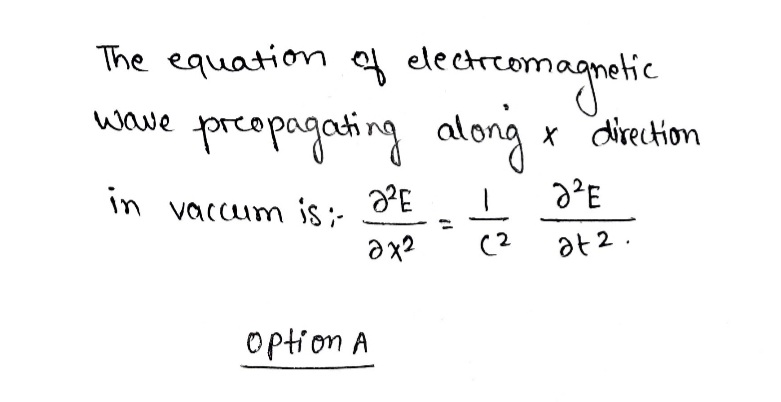 The equation of electrcomagnetic
wave prcopagating along x direction
in vaccum is :- ∂²E/∂x² = 1/c² ∂²E/∂t² .
option A